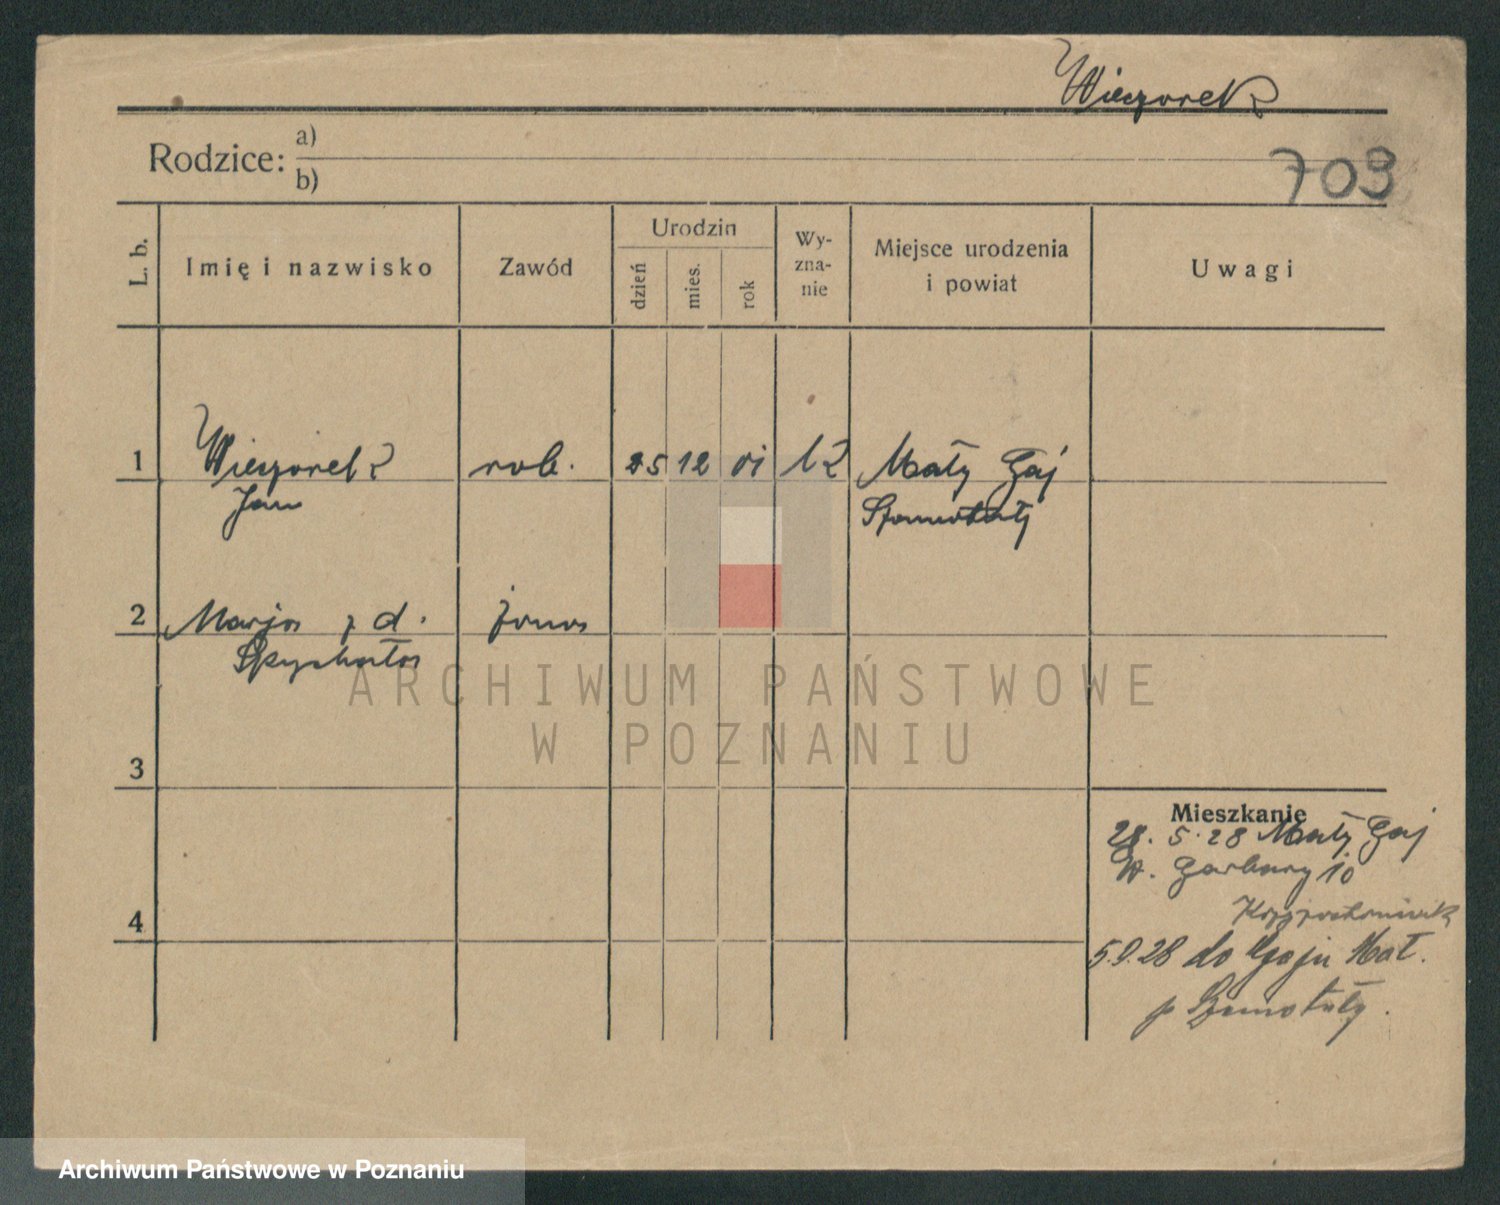 Wieczorek
Rodzice: a)
b)
709
L. b.
Imię i nazwisko
Zawód
Urodzin
dzień
mies.
rok
Wy-
zna-
nie
Miejsce urodzenia
i powiat
Uwagi
1 Wieczorek rob. 25 12 01 k Mały Gaj
Jan Szamotuły
2 Marja z d. żona
Spychała
ARCHIWUM PAŃSTWOWE
W POZNANIU
3
Mieszkanie
28. 5. 28 Mały Gaj
W. Garbary 10
4
5.9.28 do Gaju Mał.
p Szamotuły.
Archiwum Państwowe w Poznaniu